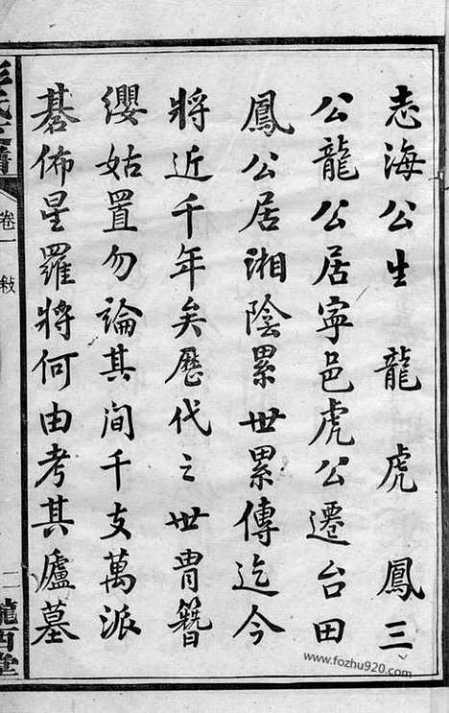 志海公生 龍 虎 鳳三
公龍公居寜邑虎公遷台田
鳳公居湘陰累世累傳迄今
將近千年矣歷代之世胄簪
纓姑置勿論其间千支萬派
碁佈星羅將何由考其廬墓
卷一 敘
二
www.fozhu920.com